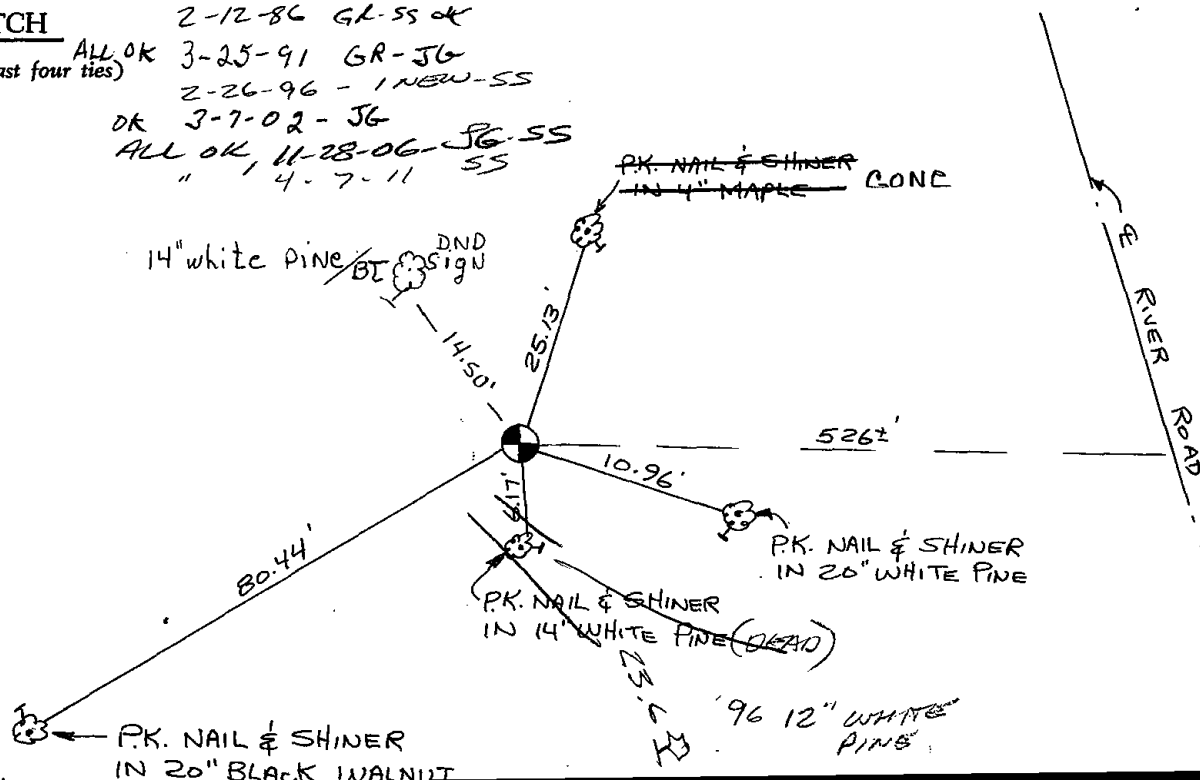 TCH
ast four ties)
2-12-86 GR-SS OK
ALL OK 3-25-91 GR-JG
2-26-96 - 1 NEW-SS
OK 3-7-02 - JG
ALL OK, 11-28-06- JG-SS
" 4-7-11 SS
P.K. NAIL & SHINER
IN 4" MAPLE GONE
14" white pine/BT
DND
Sign
14.50'
25.13'
℄ RIVER ROAD
526±'
10.96'
6.17'
80.44'
P.K. NAIL & SHINER
IN 20" WHITE PINE
P.K. NAIL & SHINER
IN 14" WHITE PINE (DEAD)
'96 12" WHITE
PINE
P.K. NAIL & SHINER
IN 20" BLACK WALNUT